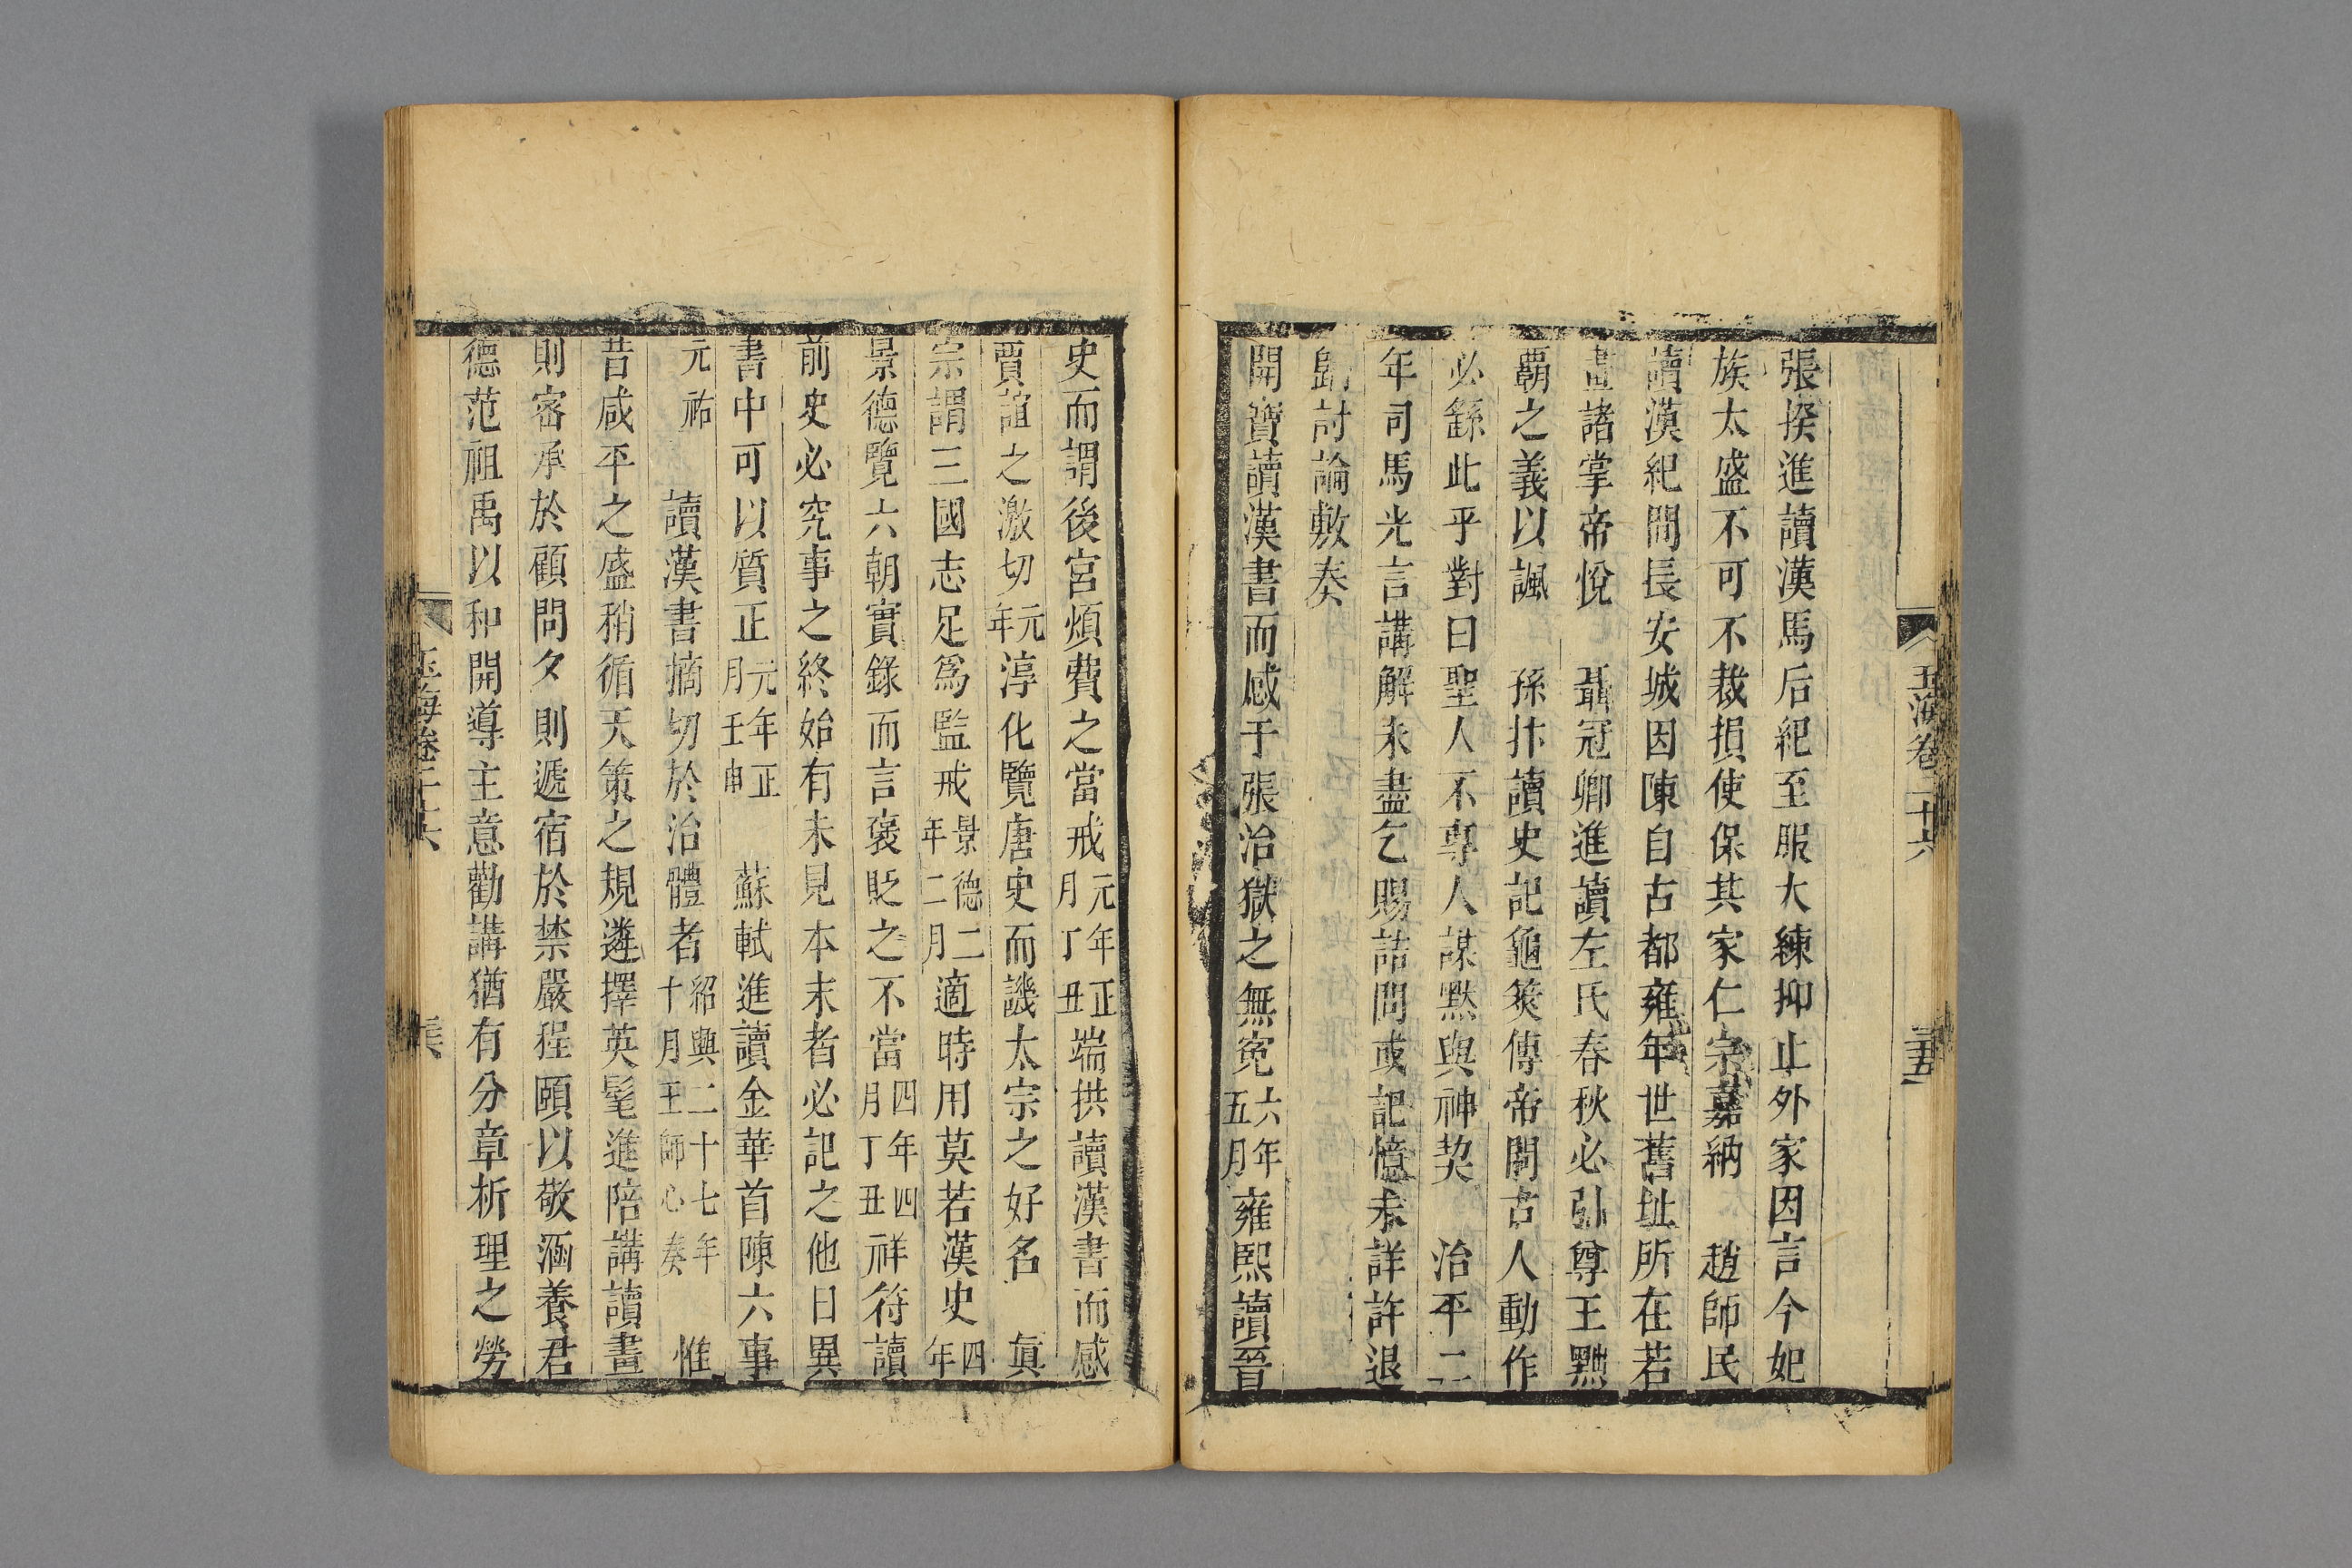 玉海卷二十六
三五
張揆進讀漢馬后紀至服大練抑止外家因言今妃
族太盛不可不裁損使保其家仁宗嘉納　趙師民
讀漢紀問長安城因陳自古都雍年世舊址所在若
畫諸掌帝悅　聶冠卿進讀左氏春秋必引尊王黜
覇之義以諷　孫抃讀史記龜筴傳帝問古人動作
必繇此乎對曰聖人不專人謀黙與神契　治平二
年司馬光言講解未盡乞賜詰問或記憶未詳許退
歸討論敷奏
開寶讀漢書而感于張治獄之無寃六年五月雍熙讀晉
史而謂後宮煩費之當戒元年正月丁丑端拱讀漢書而感
賈誼之激切元年淳化覽唐史而譏太宗之好名　真
宗謂三國志足爲監戒景德二年二月適時用莫若漢史四年
景德覽六朝實錄而言褒貶之不當四年四月丁丑祥符讀
前史必究事之終始有未見本末者必記之他日異
書中可以質正元年正月壬申　蘇軾進讀金華首陳六事
元祐　讀漢書摘切於治體者紹興二十七年十月王師心奏　惟
昔咸平之盛稍循天策之規遴擇英髦進陪講讀晝
則密承於顧問夕則遞宿於禁嚴程頤以敬涵養君
德范祖禹以和開導主意勸講猶有分章析理之勞
玉海卷二十六